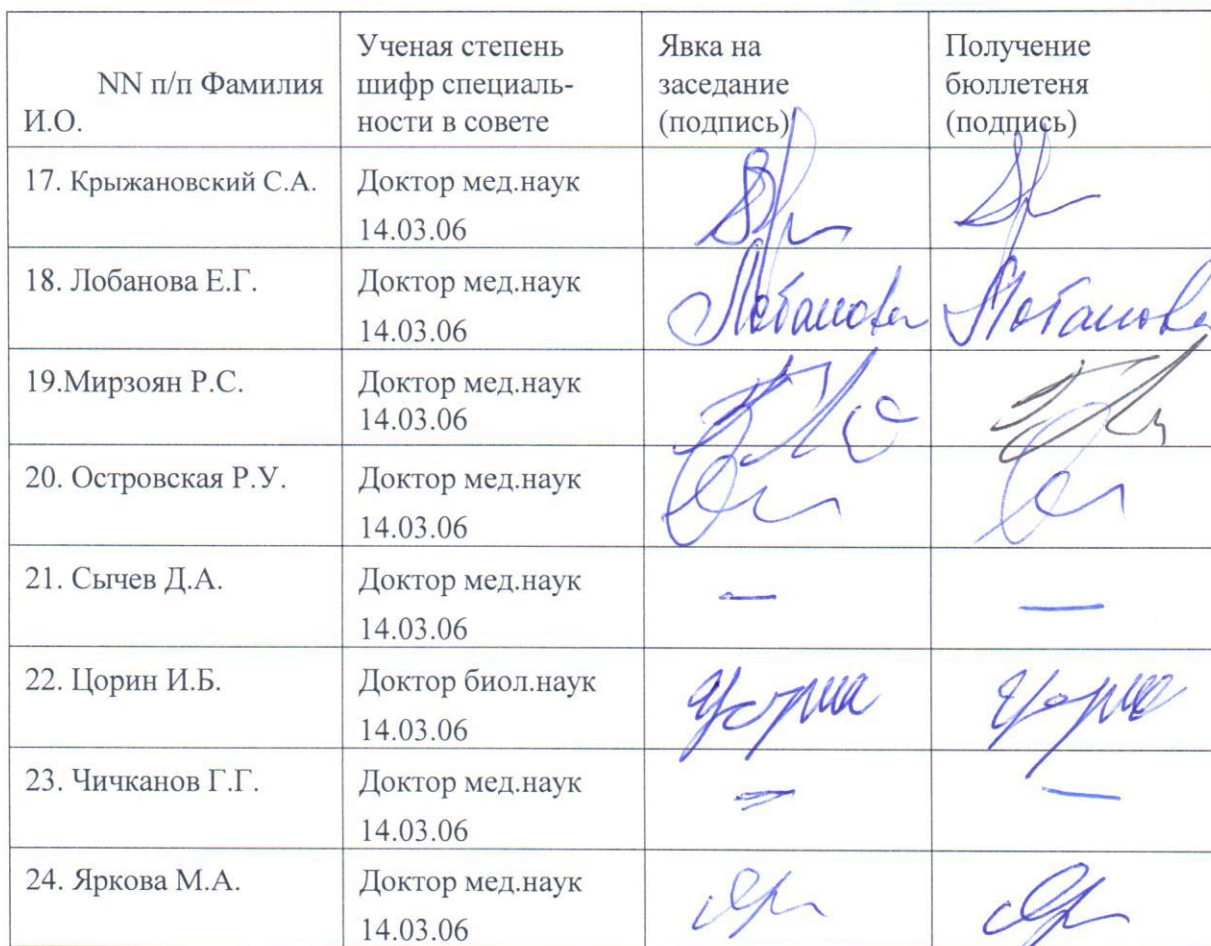 NN п/п Фамилия
И.О.
Ученая степень
шифр специаль-
ности в совете
Явка на
заседание
(подпись)
Получение
бюллетеня
(подпись)
17. Крыжановский С.А.
Доктор мед.наук
14.03.06
18. Лобанова Е.Г.
Доктор мед.наук
14.03.06
Лобанова
Лобанова
19.Мирзоян Р.С.
Доктор мед.наук
14.03.06
20. Островская Р.У.
Доктор мед.наук
14.03.06
21. Сычев Д.А.
Доктор мед.наук
14.03.06
—
—
22. Цорин И.Б.
Доктор биол.наук
14.03.06
23. Чичканов Г.Г.
Доктор мед.наук
14.03.06
—
—
24. Яркова М.А.
Доктор мед.наук
14.03.06